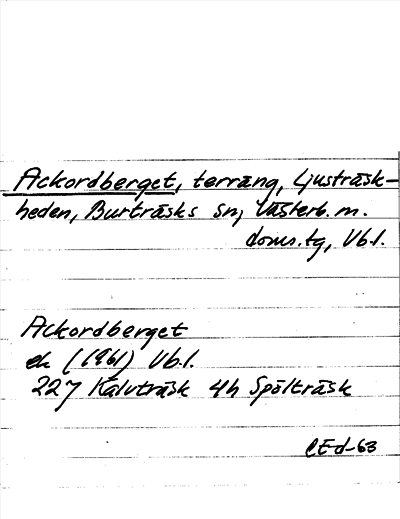 Ackordberget, terräng, Ljusträsk-
heden, Burträsks sn, Västerb. m.
doms.tg, Vb.l.
Ackordberget
ek (1961) Vb.l.
227 Kalvträsk 4h Spölträsk
CEd-63